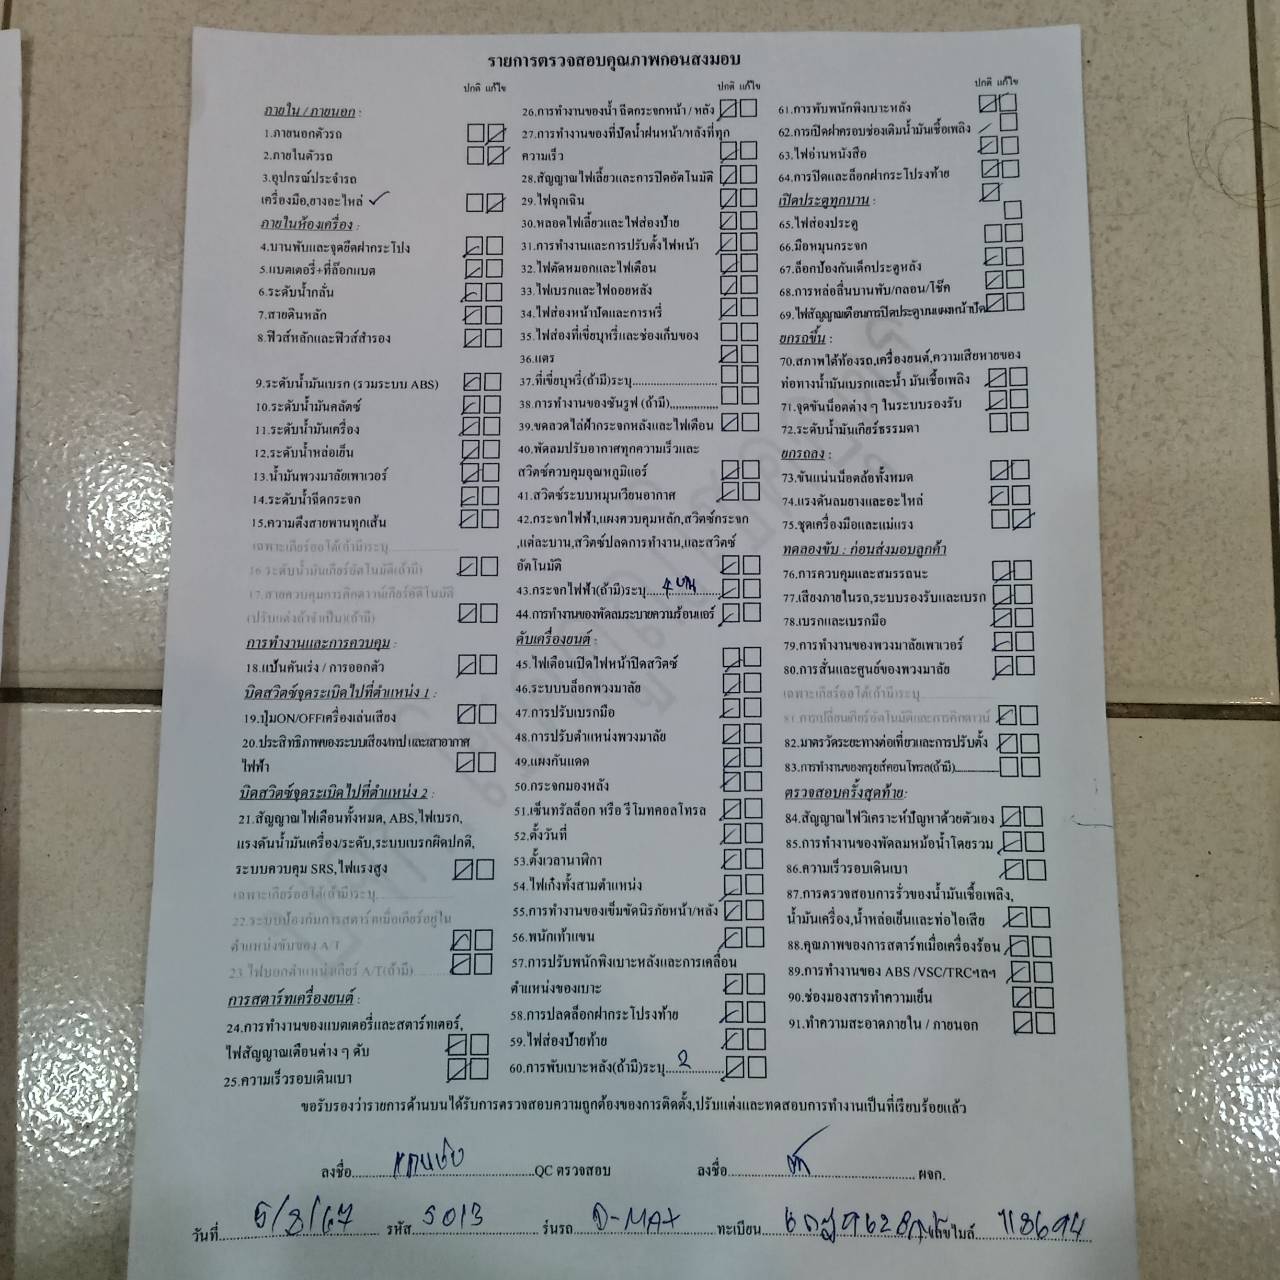 รายการตรวจสอบคุณภาพก่อนส่งมอบ
ปกติ แก้ไข
ภายใน / ภายนอก :
1.ภายนอกตัวรถ
2.ภายในตัวรถ
3.อุปกรณ์ประจำรถ
เครื่องมือ,ยางอะไหล่
ภายในห้องเครื่อง :
4.บานพับและจุดยึดฝากระโปง
5.แบตเตอรี่+ที่ล๊อกแบต
6.ระดับน้ำกลั่น
7.สายดินหลัก
8.ฟิวส์หลักและฟิวส์สำรอง
9.ระดับน้ำมันเบรก (รวมระบบ ABS)
10.ระดับน้ำมันคลัตช์
11.ระดับน้ำมันเครื่อง
12.ระดับน้ำหล่อเย็น
13.น้ำมันพวงมาลัยเพาเวอร์
14.ระดับน้ำฉีดกระจก
15.ความตึงสายพานทุกเส้น
เฉพาะเกียร์ออโต้(ถ้ามี)ระบุ
16.ระดับน้ำมันเกียร์อัตโนมัติ(ถ้ามี)
17.สายควบคุมการคิกดาวน์เกียร์อัติโนมัติ
(ปรับแต่งถ้าจำเป็น)(ถ้ามี)
การทำงานและการควบคุม :
18.แป้นคันเร่ง / การออกตัว
บิดสวิตซ์จุดระเบิดไปที่ตำแหน่ง 1 :
19.ปุ่มON/OFFเครื่องเล่นเสียง
20.ประสิทธิภาพของระบบเสียง/เทป และเสาอากาศ
ไฟฟ้า
บิดสวิตซ์จุดระเบิดไปที่ตำแหน่ง 2 :
21.สัญญาณไฟเตือนทั้งหมด, ABS,ไฟเบรก,
แรงดันน้ำมันเครื่อง/ระดับ,ระบบเบรกผิดปกติ,
ระบบควบคุม SRS,ไฟแรงสูง
เฉพาะเกียร์ออโต้(ถ้ามี)ระบุ
22.ระบบป้องกันการสตาร์ตเมื่อเกียร์อยู่ใน
ตำแหน่งขับของ A/T
23.ไฟบอกตำแหน่งเกียร์ A/T(ถ้ามี)
การสตาร์ทเครื่องยนต์ :
24.การทำงานของแบตเตอรี่และสตาร์ทเตอร์,
ไฟสัญญาณเตือนต่าง ๆ ดับ
25.ความเร็วรอบเดินเบา
ปกติ แก้ไข
26.การทำงานของน้ำ ฉีดกระจกหน้า / หลัง
27.การทำงานของที่ปัดน้ำฝนหน้า/หลังที่ทุก
ความเร็ว
28.สัญญาณไฟเลี้ยวและการปิดอัตโนมัติ
29.ไฟฉุกเฉิน
30.หลอดไฟเลี้ยวและไฟส่องป้าย
31.การทำงานและการปรับตั้งไฟหน้า
32.ไฟตัดหมอกและไฟเตือน
33.ไฟเบรกและไฟถอยหลัง
34.ไฟส่องหน้าปัดและการหรี่
35.ไฟส่องที่เขี่ยบุหรี่และช่องเก็บของ
36.แตร
37.ที่เขี่ยบุหรี่(ถ้ามี)ระบุ
38.การทำงานของซันรูฟ (ถ้ามี)
39.ขดลวดไล่ฝ้ากระจกหลังและไฟเตือน
40.พัดลมปรับอากาศทุกความเร็วและ
สวิตซ์ควบคุมอุณหภูมิแอร์
41.สวิตซ์ระบบหมุนเวียนอากาศ
42.กระจกไฟฟ้า,แผงควบคุมหลัก,สวิตซ์กระจก
,แต่ละบาน,สวิตซ์ปลดการทำงาน,และสวิตซ์
อัตโนมัติ
43.กระจกไฟฟ้า(ถ้ามี)ระบุ 4 บาน
44.การทำงานของพัดลมระบายความร้อนแอร์
ดับเครื่องยนต์ :
45.ไฟเตือนเปิดไฟหน้าปิดสวิตซ์
46.ระบบบล็อกพวงมาลัย
47.การปรับเบรกมือ
48.การปรับตำแหน่งพวงมาลัย
49.แผงกันแดด
50.กระจกมองหลัง
51.เซ็นทรัลล็อก หรือ รีโมทคอลโทรล
52.ตั้งวันที่
53.ตั้งเวลานาฬิกา
54.ไฟเก๋งทั้งสามตำแหน่ง
55.การทำงานของเข็มขัดนิรภัยหน้า/หลัง
56.พนักเท้าแขน
57.การปรับพนักพิงเบาะหลังและการเคลื่อน
ตำแหน่งของเบาะ
58.การปลดล็อกฝากระโปรงท้าย
59.ไฟส่องป้ายท้าย
60.การพับเบาะหลัง(ถ้ามี)ระบุ 2
ปกติ แก้ไข
61.การพับพนักพิงเบาะหลัง
62.การเปิดฝาครอบช่องเติมน้ำมันเชื้อเพลิง
63.ไฟอ่านหนังสือ
64.การปิดและล็อกฝากระโปรงท้าย
เปิดประตูทุกบาน :
65.ไฟส่องประตู
66.มือหมุนกระจก
67.ล็อกป้องกันเด็กประตูหลัง
68.การหล่อลื่นบานพับ/กลอน/โช๊ค
69.ไฟสัญญาณเตือนการปิดประตูบนแผงหน้าปัด
ยกรถขึ้น :
70.สภาพใต้ท้องรถ,เครื่องยนต์,ความเสียหายของ
ท่อทางน้ำมันเบรกและน้ำ มันเชื้อเพลิง
71.จุดขันน็อตต่าง ๆ ในระบบรองรับ
72.ระดับน้ำมันเกียร์ธรรมดา
ยกรถลง :
73.ขันแน่นน็อตล้อทั้งหมด
74.แรงดันลมยางและอะไหล่
75.ชุดเครื่องมือและแม่แรง
ทดลองขับ : ก่อนส่งมอบลูกค้า
76.การควบคุมและสมรรถนะ
77.เสียงภายในรถ,ระบบรองรับและเบรก
78.เบรกและเบรกมือ
79.การทำงานของพวงมาลัยเพาเวอร์
80.การสั่นและศูนย์ของพวงมาลัย
เฉพาะเกียร์ออโต้(ถ้ามี)ระบุ
81.การเปลี่ยนเกียร์อัตโนมัติและการคิกดาวน์
82.มาตรวัดระยะทางต่อเที่ยวและการปรับตั้ง
83.การทำงานของครุยส์คอนโทรล(ถ้ามี)
ตรวจสอบครั้งสุดท้าย:
84.สัญญาณไฟวิเคราะห์ปัญหาด้วยตัวเอง
85.การทำงานของพัดลมหม้อน้ำโดยรวม
86.ความเร็วรอบเดินเบา
87.การตรวจสอบการรั่วของน้ำมันเชื้อเพลิง,
น้ำมันเครื่อง,น้ำหล่อเย็นและท่อไอเสีย
88.คุณภาพของการสตาร์ทเมื่อเครื่องร้อน
89.การทำงานของ ABS /VSC/TRCฯลฯ
90.ช่องมองสารทำความเย็น
91.ทำความสะอาดภายใน / ภายนอก
ขอรับรองว่ารายการด้านบนได้รับการตรวจสอบความถูกต้องของการติดตั้ง,ปรับแต่งและทดสอบการทำงานเป็นที่เรียบร้อยแล้ว
ลงชื่อ QC ตรวจสอบ ลงชื่อ ผจก.
วันที่ 5/8/67 รหัส 5013 รุ่นรถ D-MAX ทะเบียน เลขไมล์ 118694